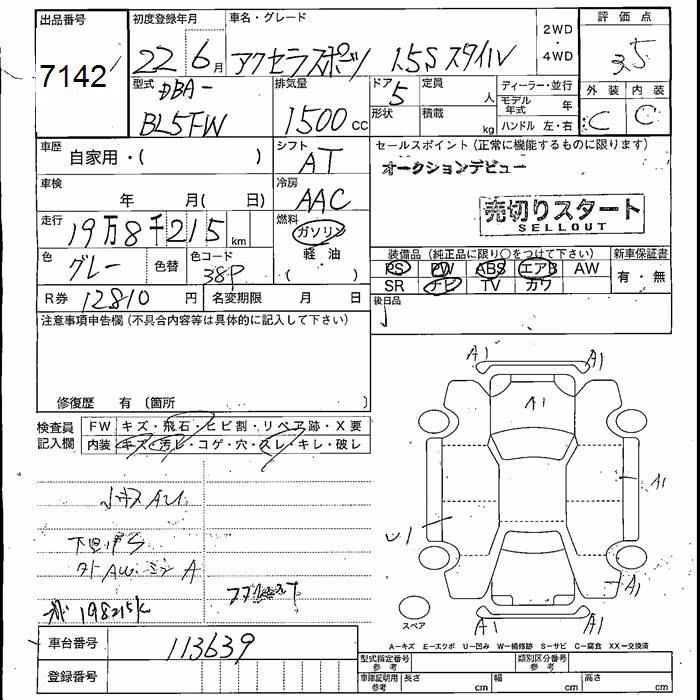 出品番号 初度登録年月 車名・グレード 2WD・4WD 評価点
7142 22 6月 アクセラスポーツ 1.5S スタイル 3.5
型式 DBA- BL5FW
排気量 1500 cc
ドア 5 形状
定員 人 積載 kg
ディーラー・並行
モデル年式 年
ハンドル 左・右
外装 内装
C C
車歴 自家用・( )
シフト AT
セールスポイント (正常に機能するものに限ります)
オークションデビュー
車検 年 月( 日)
冷房 AAC
売切りスタート
SELLOUT
走行 19万8千215 km
燃料 ガソリン 軽油 ・( )
色 グレー 色替 色コード 38P
装備品 (純正品に限り○をつけて下さい) 新車保証書
PS PW ABS エアB AW 有・無
SR ナビ TV カワ
R券 12810 円 名変期限 月 日
後日品
注意事項申告欄 (不具合内容等は具体的に記入して下さい)
修復歴 有 〔箇所 〕
検査員記入欄
FW キズ・飛石・ヒビ割・リペア跡・X要
内装 キズ・汚レ・コゲ・穴・スレ・キレ・破レ
A1 A1
A1
A1
U1
A1
A1 A1
小キズ AU
198215k
スペア
A-キズ E-エクボ U-凹み W-補修跡 S-サビ C-腐食 XX-交換済
車台番号 113639
登録番号
型式指定番号 参考 類別区分番号 参考
車庫証明用 参考 長さ cm 幅 cm 高さ cm